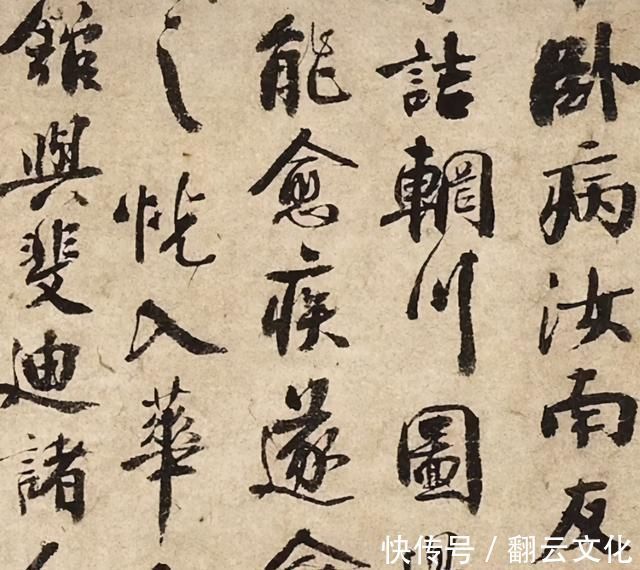 卧病汝南友
詰輞川圖
能愈疾遂
之恍入華
館與斐迪諸
快传号 / 翻云文化